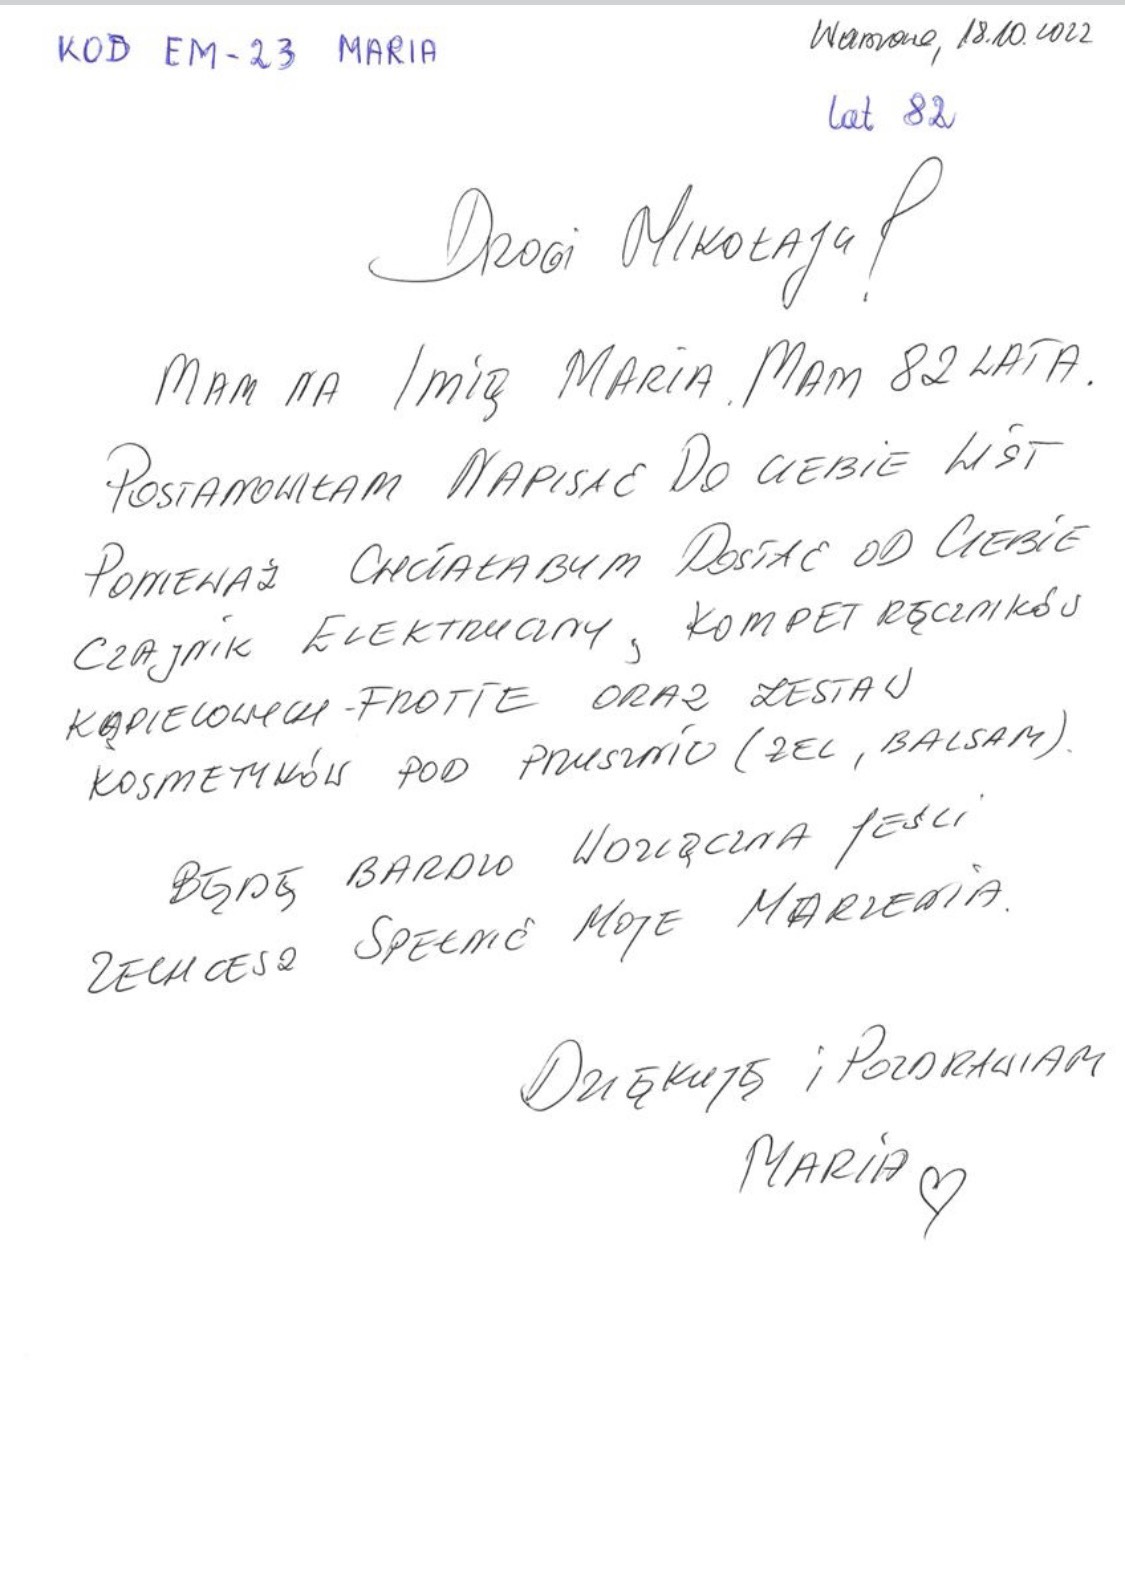 KOD EM-23 MARIA
Warszawa, 18.10.2022
lat 82
Drogi Mikołaju!
MAM NA Imię MARIA. MAM 82 LATA.
POSTANOWIŁAM NAPISAĆ DO CIEBIE LIST
PONIEWAŻ CHCIAŁABYM DOSTAĆ OD CIEBIE
CZAJNIK ELEKTRYCZNY, KOMPET RĘCZNIKÓW
KĄPIELOWYCH-FROTTE ORAZ ZESTAW
KOSMETYKÓW POD PRYSZNIC (ŻEL, BALSAM).
BĘDĘ BARDZO WDZIĘCZNA JEŚLI
ZECHCESZ SPEŁNIĆ MOJE MARZENIA.
DZIĘKUJĘ i POZDRAWIAM
MARIA ♡